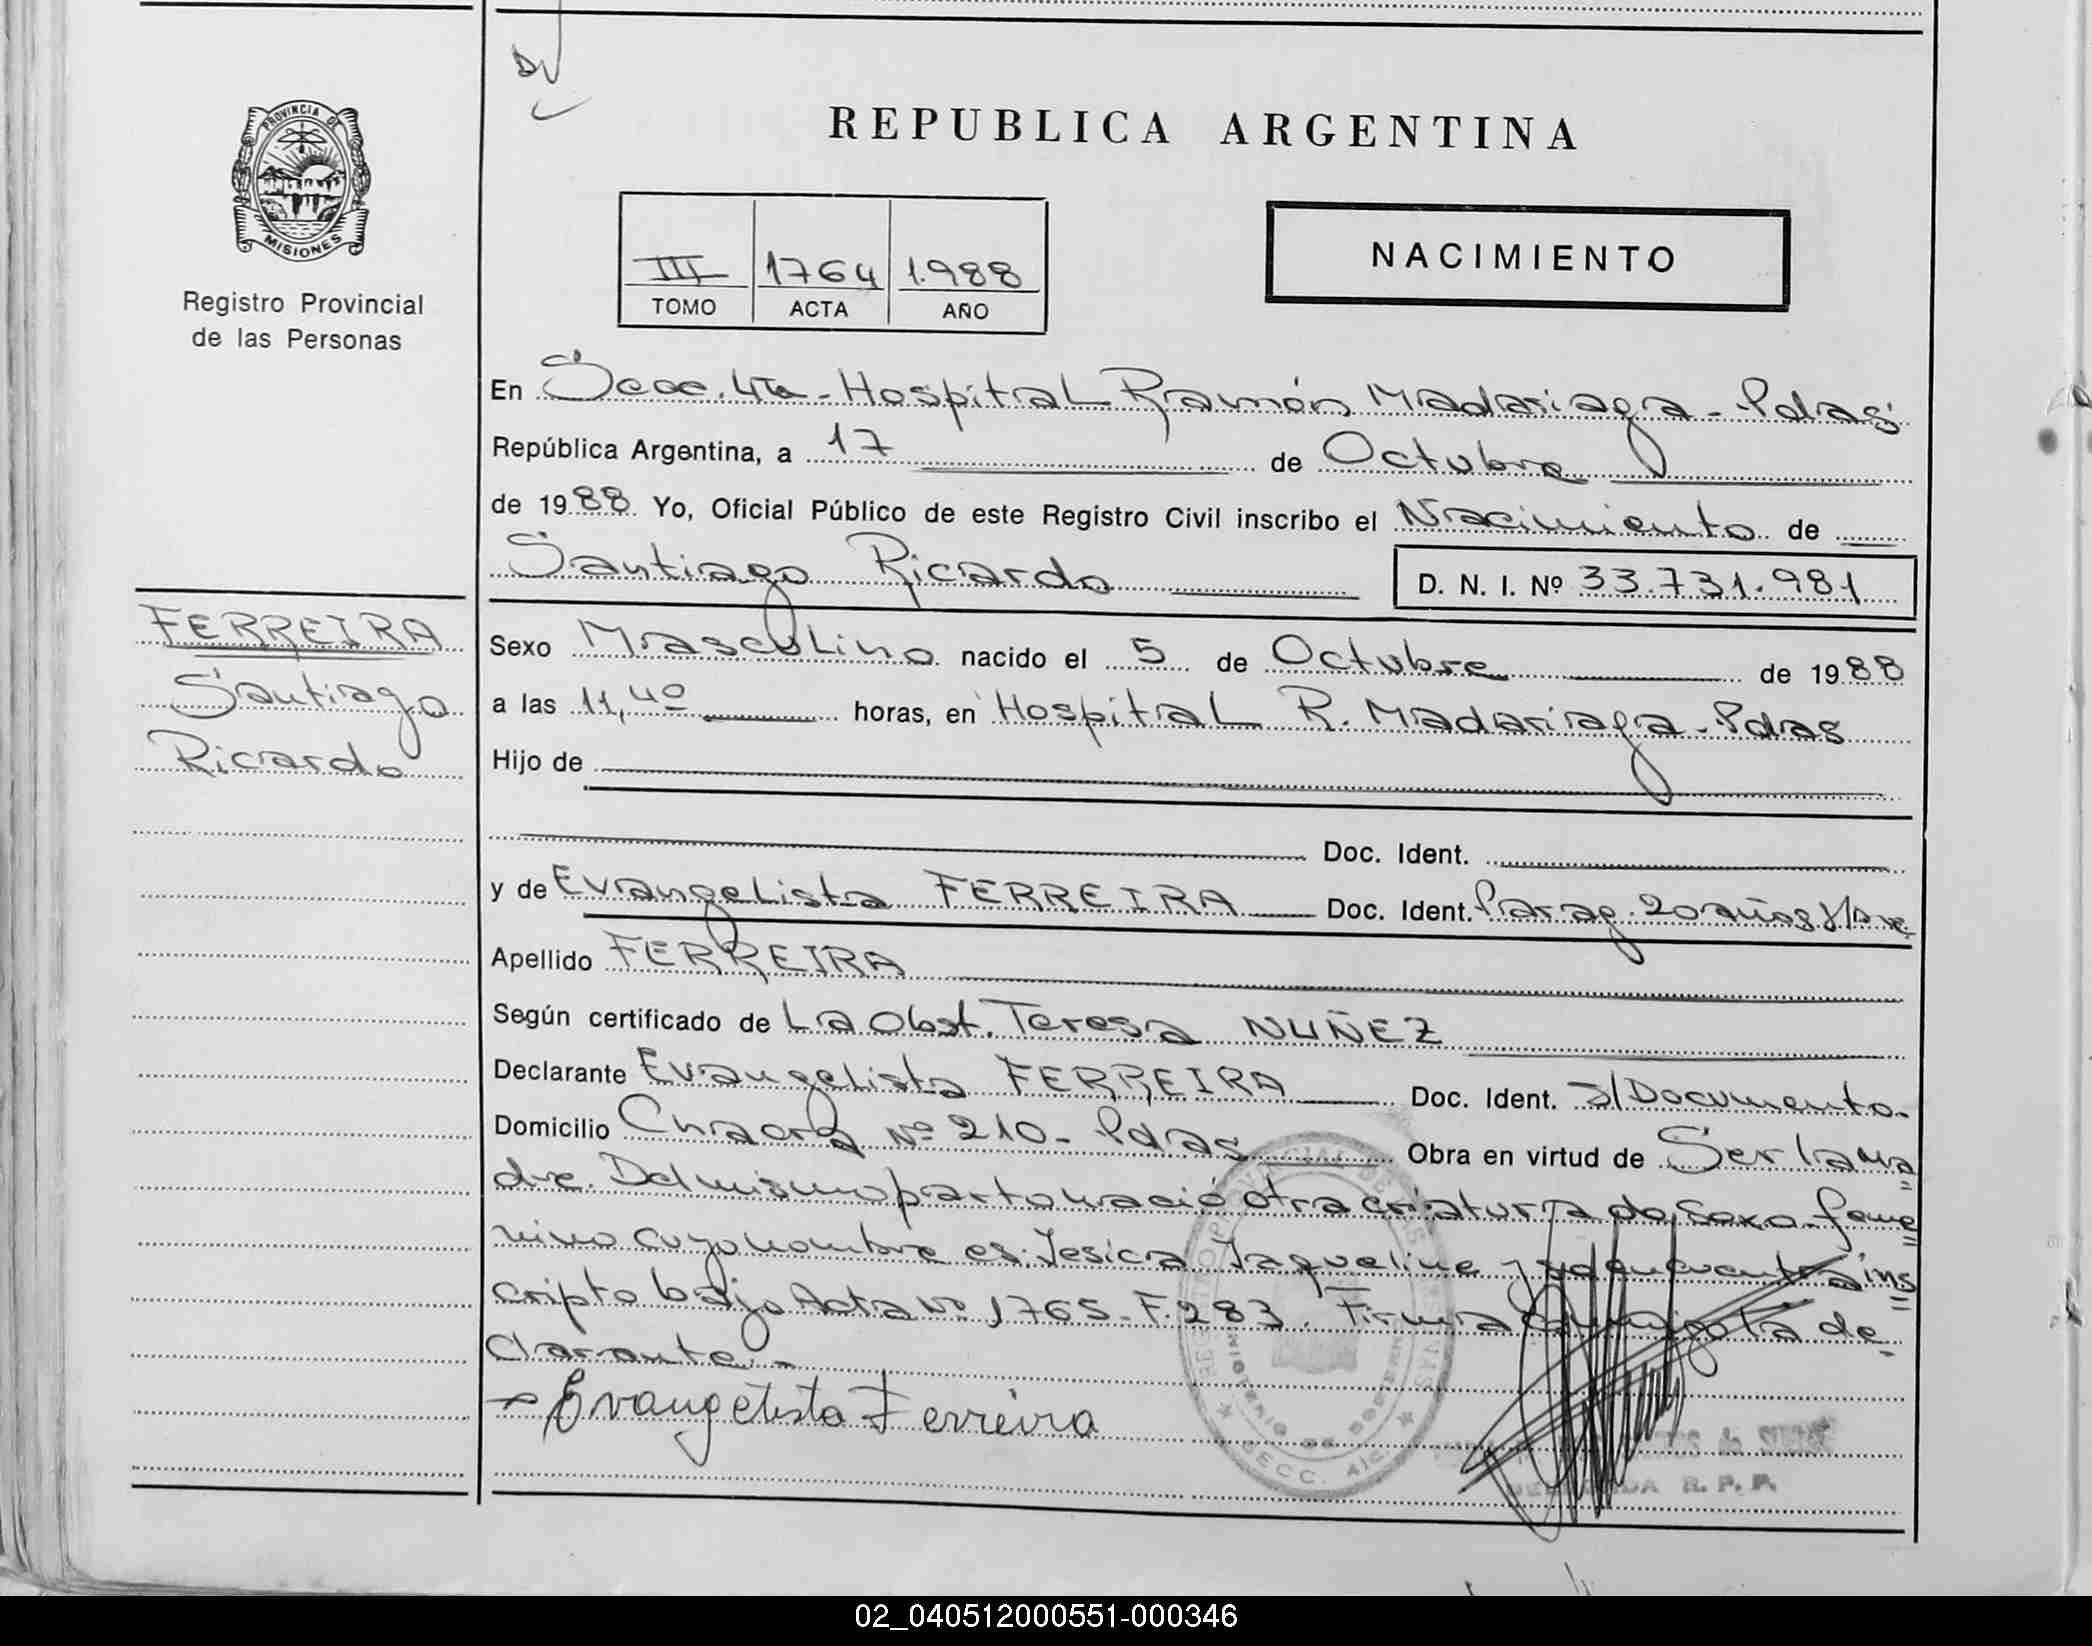 DV
REPUBLICA ARGENTINA
PROVINCIA DE
MISIONES
Registro Provincial
de las Personas
III 1764 1.988
TOMO ACTA AÑO
NACIMIENTO
En Secc. 4ta - Hospital Ramón Madariaga - Pdas
República Argentina, a 17 de Octubre
de 1988 Yo, Oficial Público de este Registro Civil inscribo el Nacimiento de
Santiago Ricardo D. N. I. Nº 33.731.981
FERREIRA
Santiago
Ricardo
Sexo Masculino nacido el 5 de Octubre de 1988
a las 11,40 horas, en Hospital R. Madariaga - Pdas
Hijo de
Doc. Ident.
y de Evangelista FERREIRA Doc. Ident. Parag. 20 años
Apellido FERREIRA
Según certificado de La Obst. Teresa NUÑEZ
Declarante Evangelista FERREIRA Doc. Ident. S/Documento.
Domicilio Chacra Nº 210 - Pdas Obra en virtud de Ser la ma
dre. Del mismo parto nació otra criatura de sexo feme
nino cuyo nombre es Jesica Jaqueline y ins
cripto bajo Acta Nº 1765 - F. 283. Firma de
clarante. -
Evangelista Ferreira
R. P. P.
02_040512000551-000346